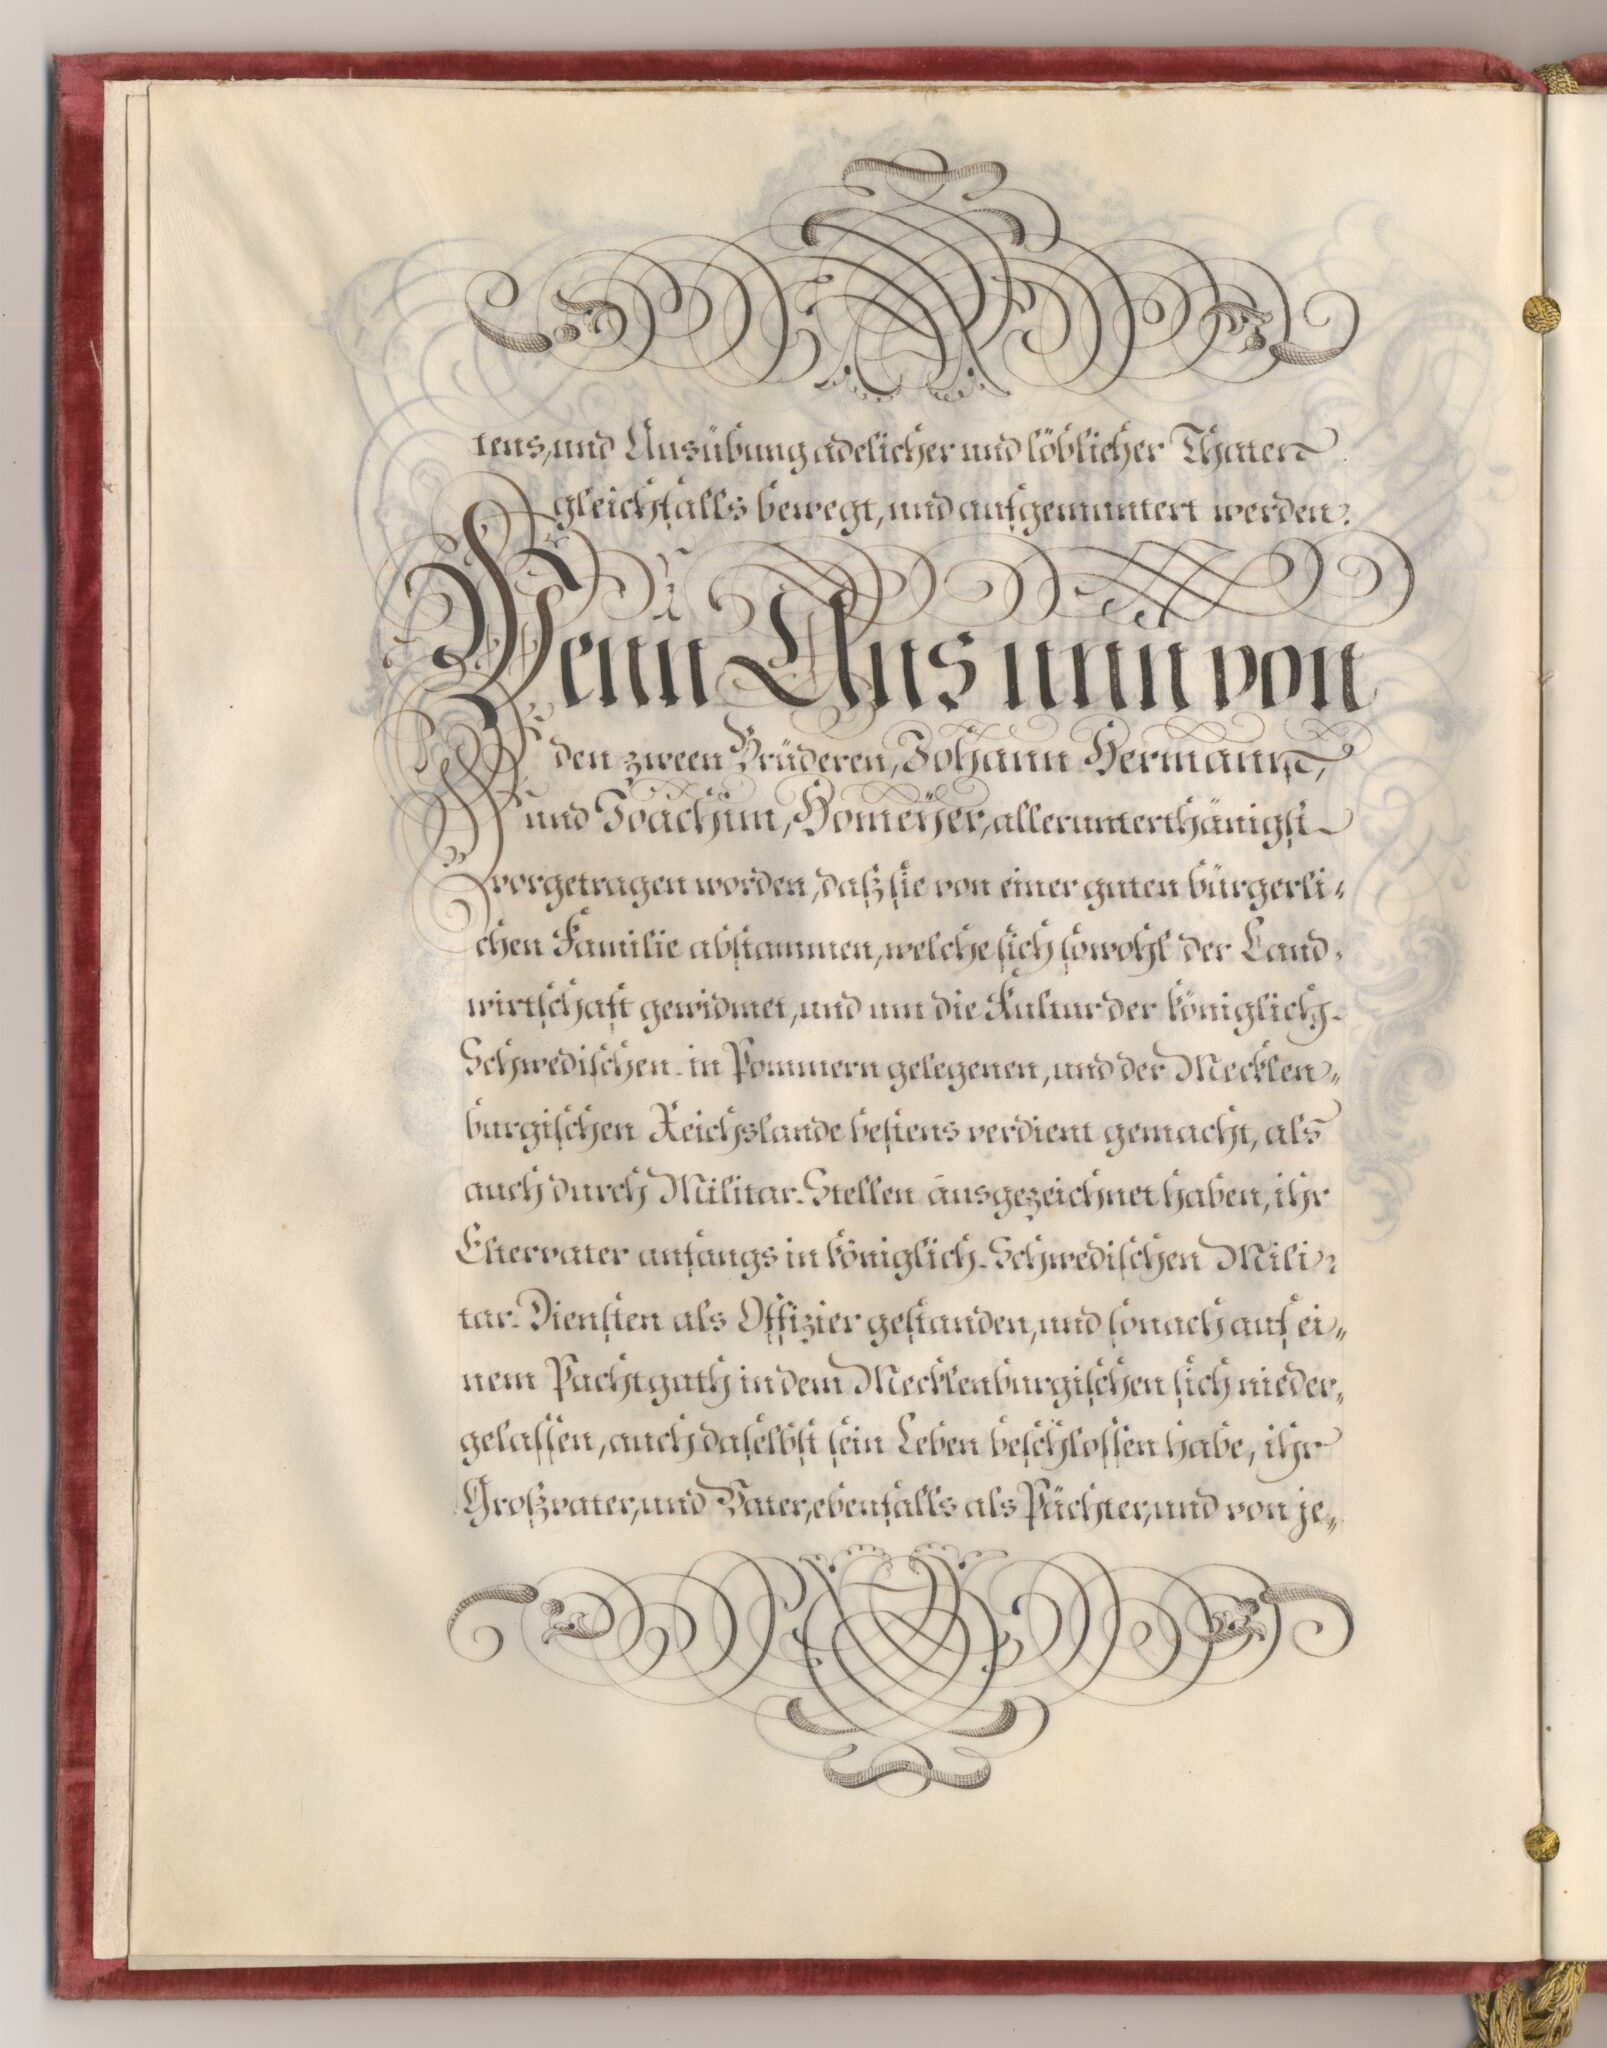 tens, und Ausübung adelicher und löblicher Thaten
gleichfalls bewegt, und aufgemuntert werden.
Wenn Uns nun von
den zween Brüderen, Johann Hermann,
und Joachim, Homeÿer, allerunterthänigst
vorgetragen worden, daß sie von einer guten bürgerli„
chen Familie abstammen, welche sich sowohl der Land„
wirtschaft gewidmet, und um die Kultur der königlich-
Schwedischen-in Pommern gelegenen, und der Mecklen„
burgischen Reichslande bestens verdient gemacht, als
auch durch Militar-Stellen ausgezeichnet haben, ihr
Eltervater anfangs in königlich-Schwedischen Mili„
tar-Diensten als Offizier gestanden, und sonach auf ei„
nem Pachtguth in dem Mecklenburgischen sich nieder„
gelassen, auch daselbst sein Leben beschlossen habe, ihr
Großvater, und Vater, ebenfalls als Pächter, und von je„